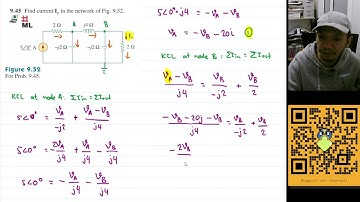 9.45 Find current I₀ in the network of Fig. 9.32.
# ML
2 Ω A j4 Ω B
5∠0° A -j2 Ω -j2 Ω 2 Ω
Figure 9.32
For Prob. 9.45.
KCL at node A: ΣIin = ΣIout
5<0° = VA/-j2 + (VA - VB)/j4
5<0° = -2VA/j4 + VA/j4 - VB/j4
5<0° = -VA/j4 - VB/j4
5<0° · j4 = -VA - VB
VA = -VB - 20j (i)
KCL at node B: ΣIin = ΣIout
(VA - VB)/j4 = VB/-j2 + VB/2
(-VB - 20j - VB)/j4 = VB/-j2 + VB/2
-2VB